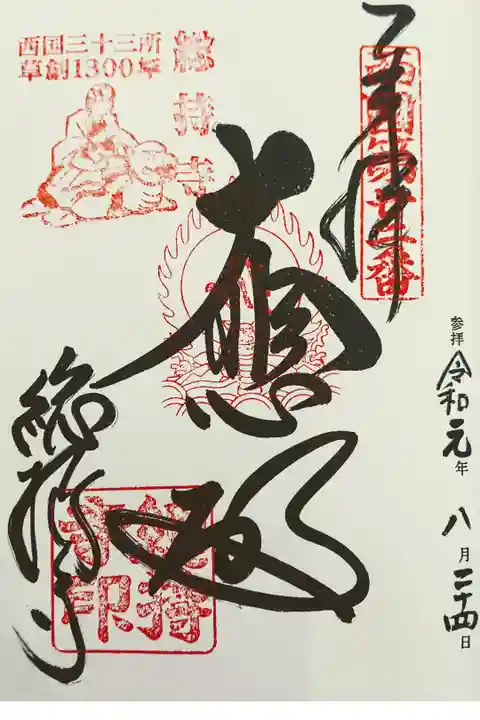 奉拝
西国第廿二番
参拝 令和元年 八月二十四日
大悲殿
總持寺
西国三十三所
草創1300年
総持寺
總持
寺印